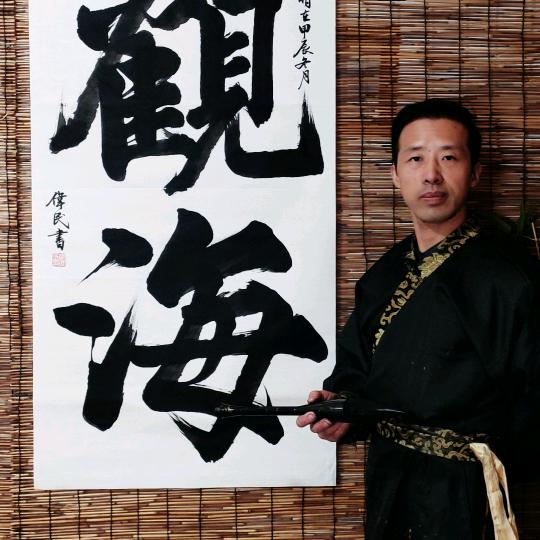 觀海
在甲辰冬月
偉民書